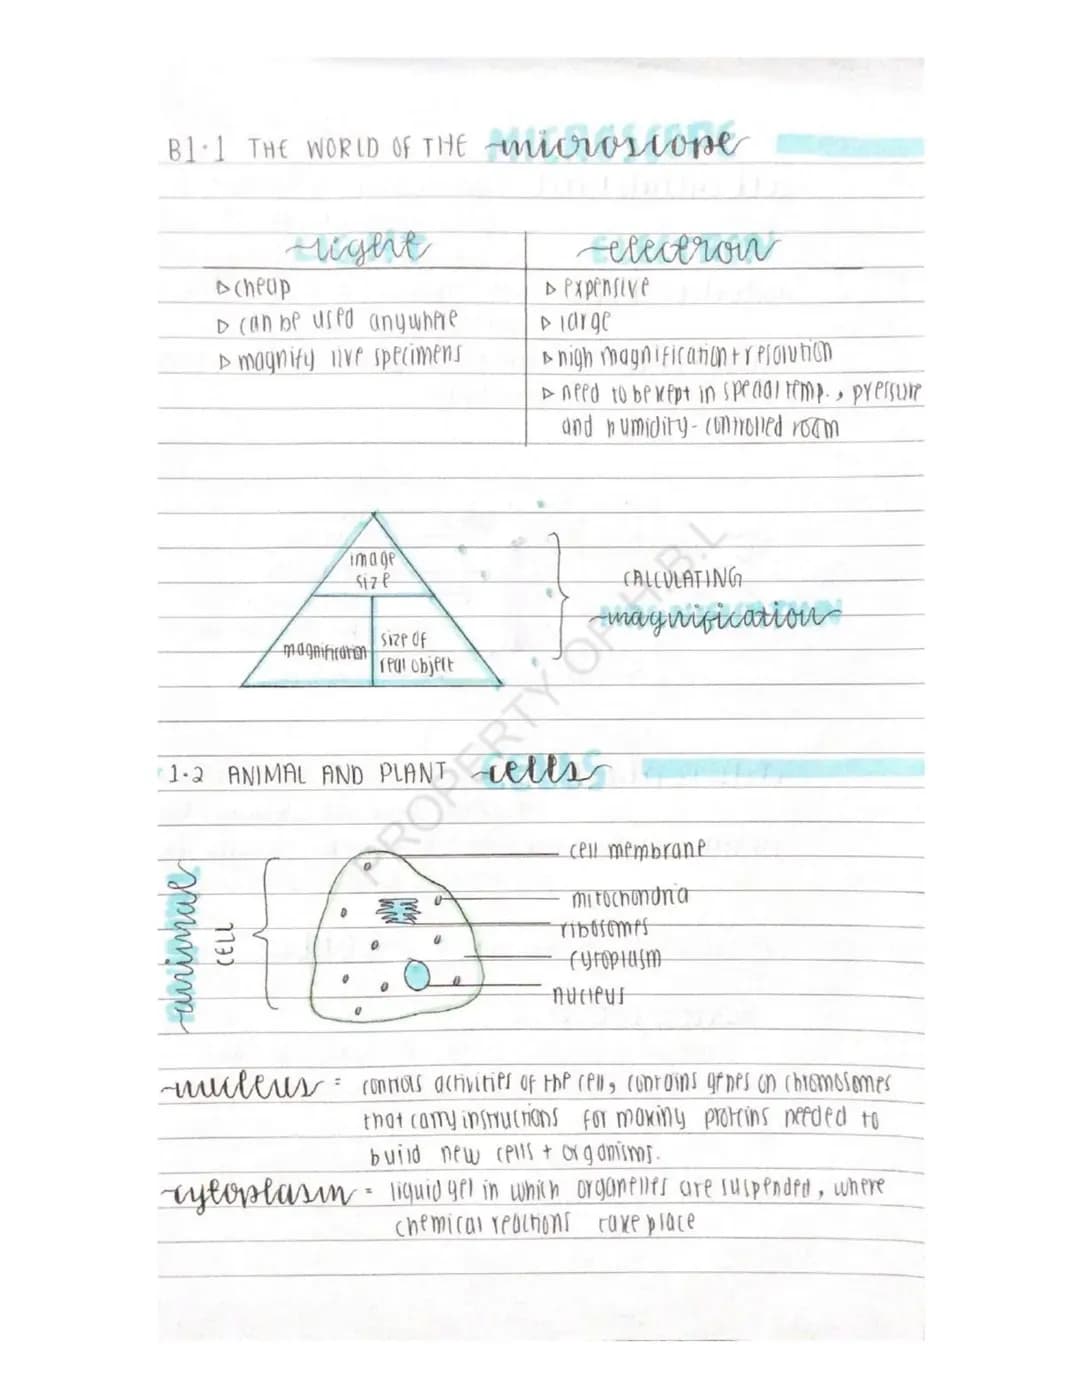 B1.1 THE WORLD OF THE microscope
light
▷ cheap
▷ can be used anywhere
▷ magnify live specimens
electron
▷ expensive
▷ large
▷ high magnification + resolution
▷ need to be kept in special temp., pressure
and humidity - controlled room
image
size
magnification
size of
real object
CALCULATING
magnification
1.2 ANIMAL AND PLANT cells
animal
CELL
cell membrane
mitochondria
ribosomes
cytoplasm
nucleus
nucleus = controls activities of the cell, contains genes on chromosomes
that carry instructions for making proteins needed to
build new cells + organisms.
cytoplasm = liquid gel in which organelles are suspended, where
chemical reactions take place
PROPERTY OF H.B.L